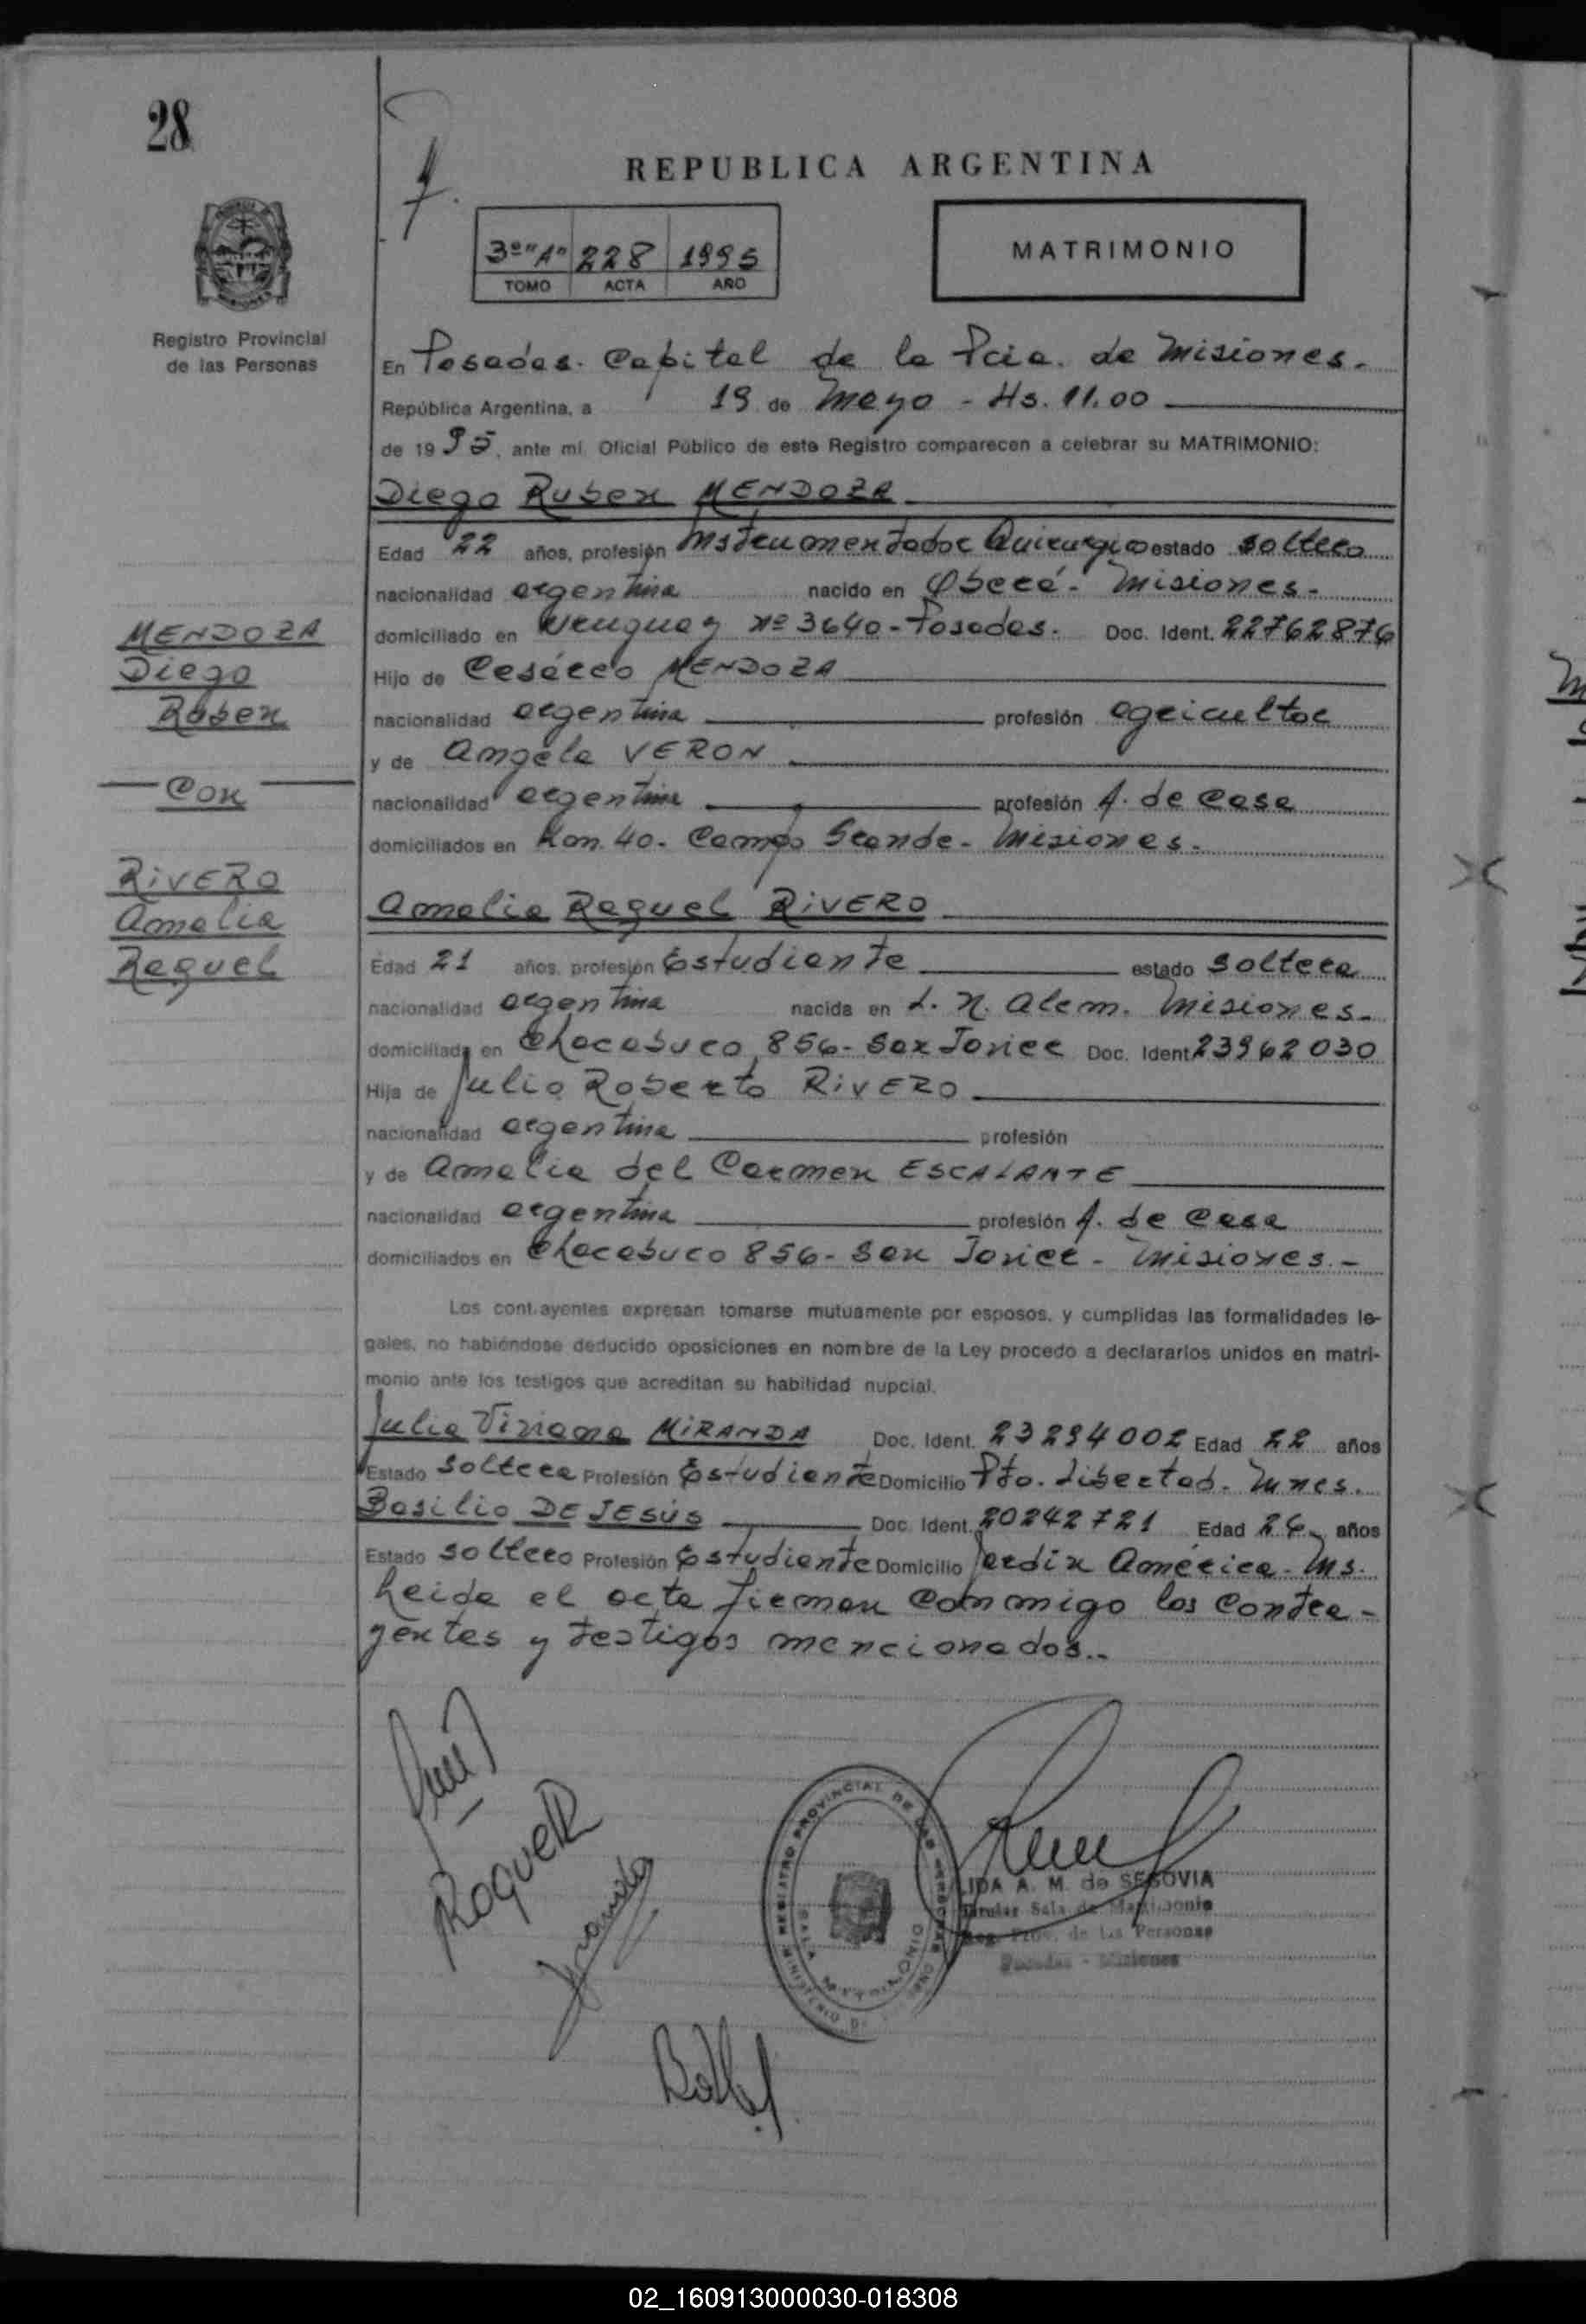 28
REPUBLICA ARGENTINA
3º "A" 228 1995
TOMO ACTA AÑO
MATRIMONIO
Registro Provincial
de las Personas
En Posadas. Capital de la Pcia. de Misiones.
República Argentina, a 19 de Mayo - Hs. 11.00
de 19 95, ante mí, Oficial Público de este Registro comparecen a celebrar su MATRIMONIO:
Diego Ruben MENDOZA
Edad 22 años, profesión Instrumentador Quirurgico estado soltero
nacionalidad argentina nacido en Oberá - Misiones.
domiciliado en Uruguay Nº 3640 - Posadas. Doc. Ident. 22762876
Hijo de Cesáreo MENDOZA
nacionalidad argentina profesión agricultor
y de Angela VERON
nacionalidad argentina profesión A. de Casa
domiciliados en Km. 40. Campo Grande - Misiones.
MENDOZA
Diego
Ruben
Con
RIVERO
Amelia
Raquel
Amelia Raquel RIVERO
Edad 21 años, profesión Estudiante estado soltera
nacionalidad argentina nacida en L. N. Alem. Misiones.
domiciliada en Chacabuco 856 - San Javier Doc. Ident. 23962030
Hija de Julio Roberto RIVERO
nacionalidad argentina profesión
y de Amelia del Carmen ESCALANTE
nacionalidad argentina profesión A. de Casa
domiciliados en Chacabuco 856 - San Javier - Misiones.-
Los contrayentes expresan tomarse mutuamente por esposos, y cumplidas las formalidades le-
gales, no habiéndose deducido oposiciones en nombre de la Ley procedo a declararlos unidos en matri-
monio ante los testigos que acreditan su habilidad nupcial.
Julia Viviana MIRANDA Doc. Ident. 23294002 Edad 22 años
Estado soltera Profesión Estudiante Domicilio Pto. Libertad. Mnes.
Basilio DE JESÚS Doc. Ident. 20242721 Edad 26 años
Estado soltero Profesión Estudiante Domicilio Jardín América - Ms.
Leida el acta firman conmigo los contra-
yentes y testigos mencionados..
Raquel R
REGISTRO PROVINCIAL DE LAS PERSONAS
SALA MATRIMONIO
LIDA A. M. de SEGOVIA
Titular Sala de Matrimonio
Reg. Prov. de las Personas
Posadas - Misiones
02_160913000030-018308